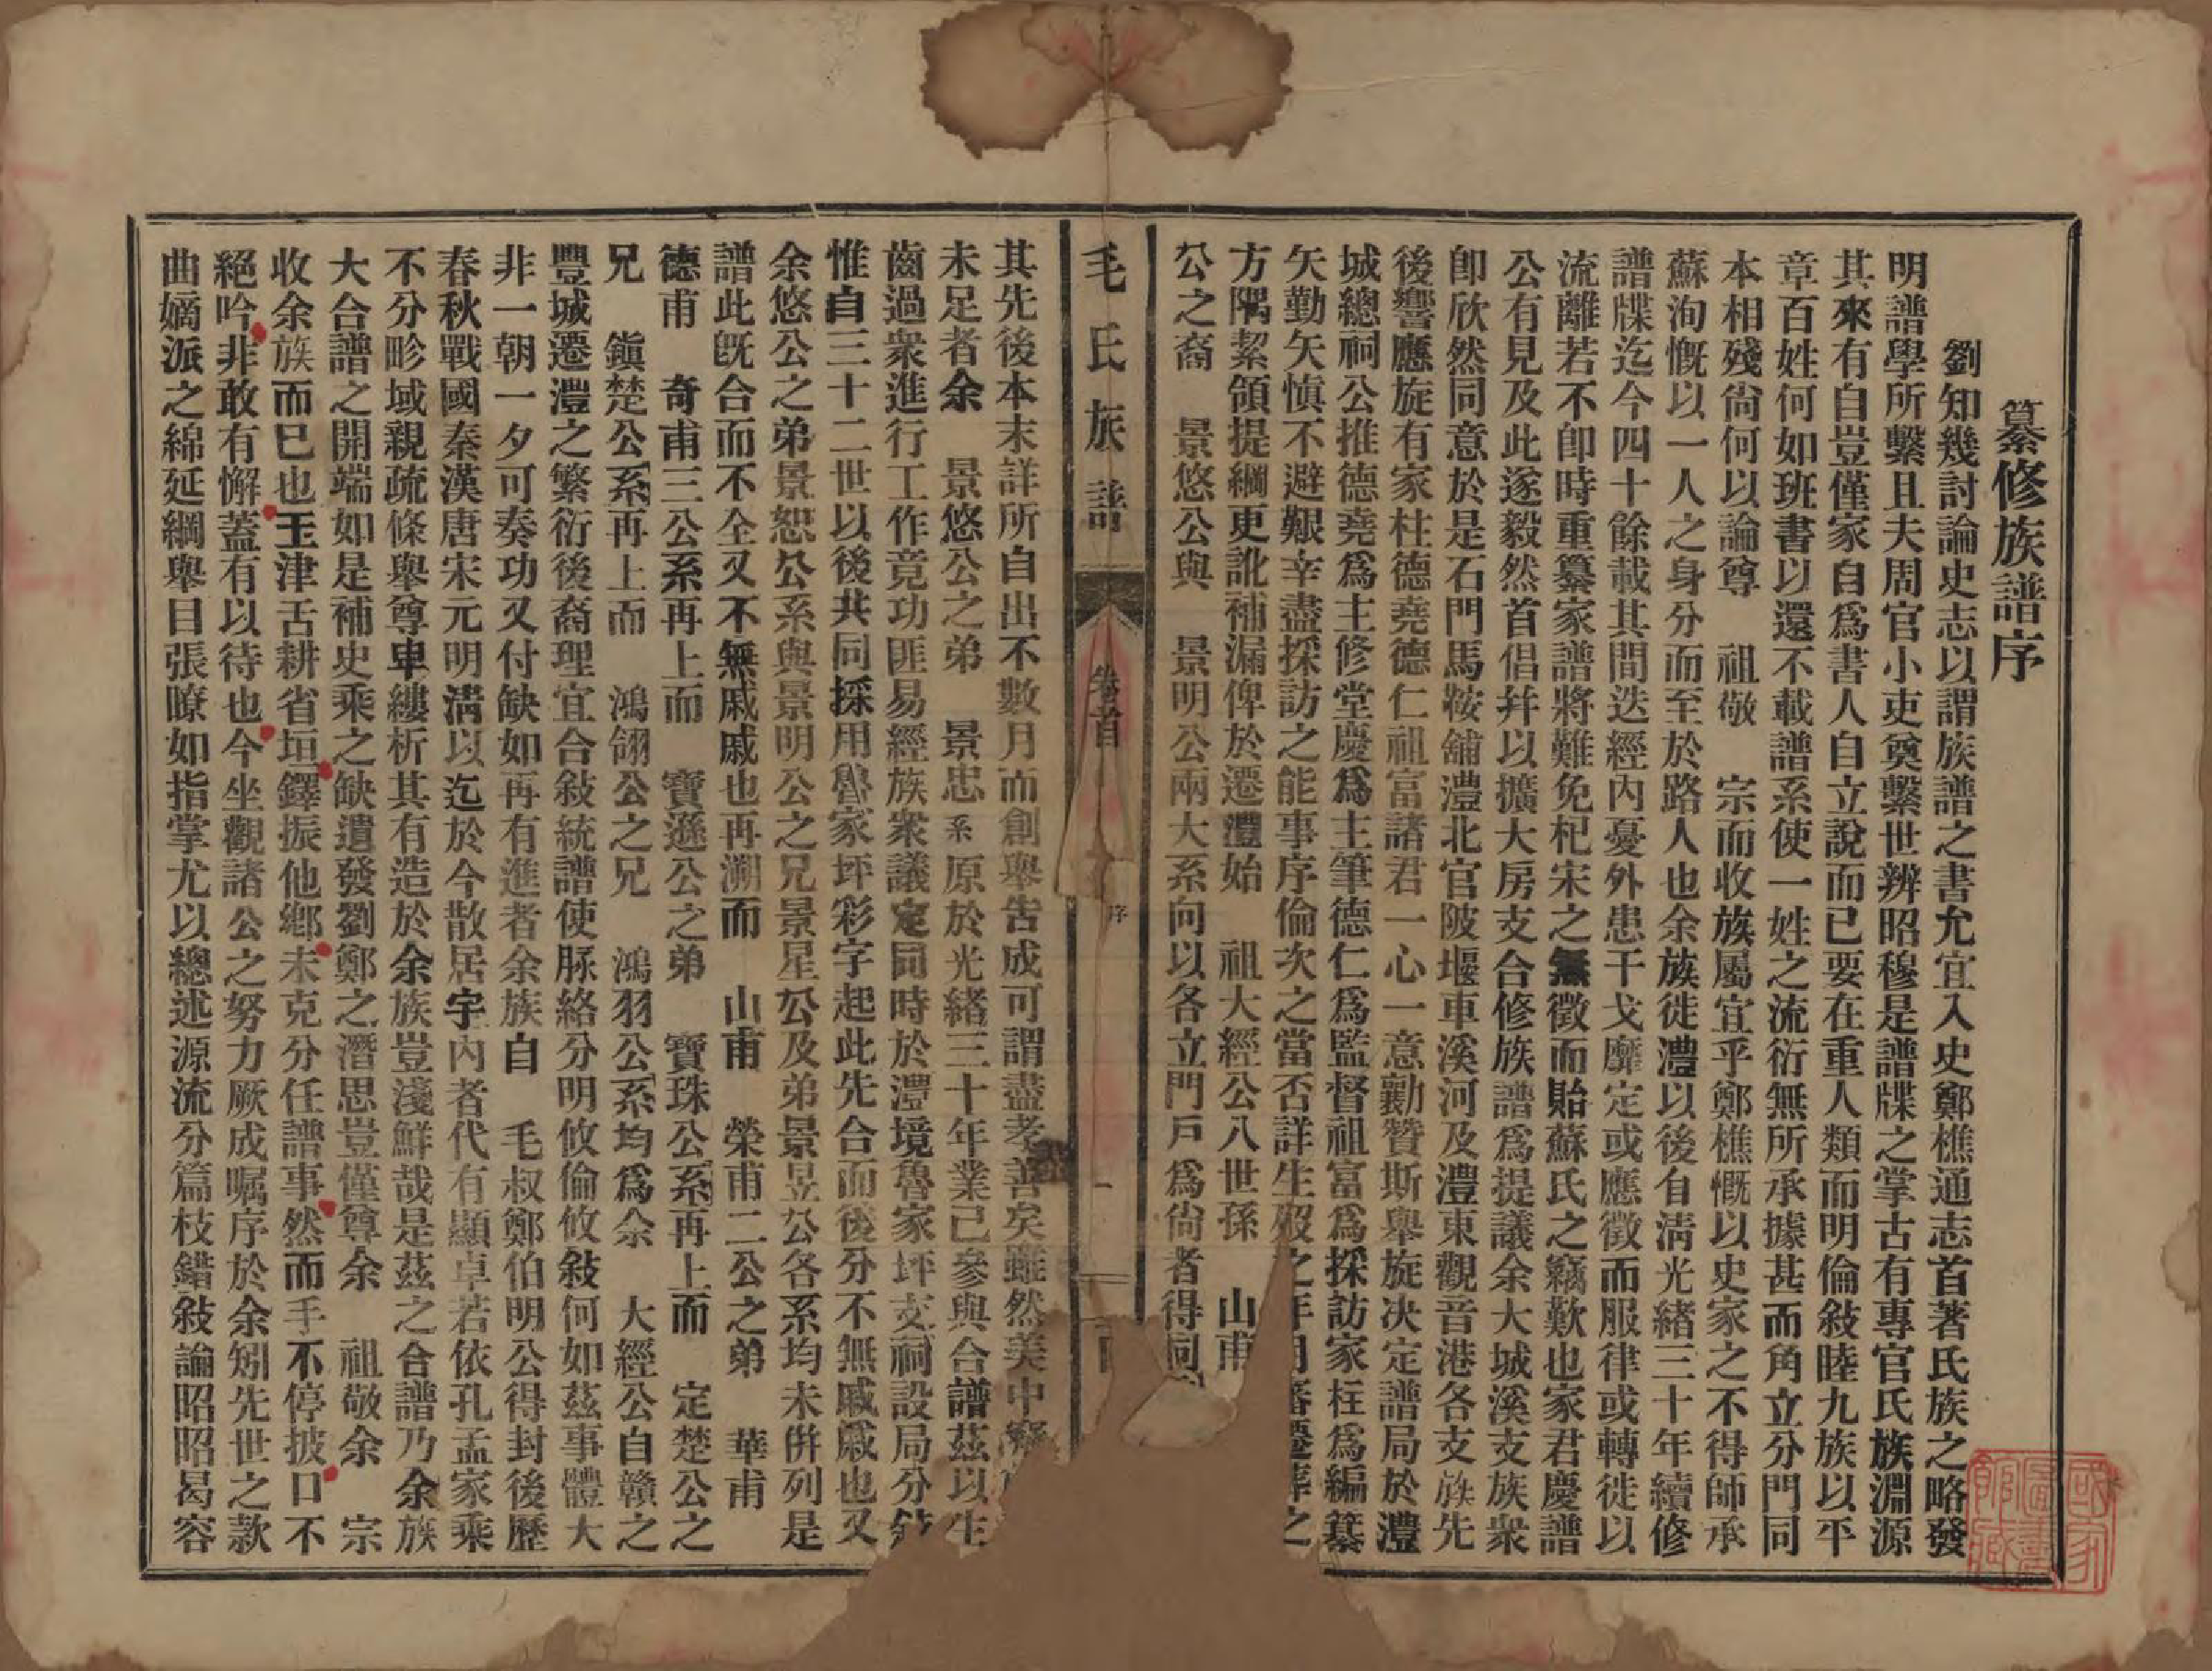 纂修族譜序
劉知幾討論史志以謂族譜之書允宜入史鄭樵通志首著氏族之略發
明譜學所繫且夫周官小吏奠繫世辨昭穆是譜牒之掌古有專官氏族淵源
其來有自豈僅家自爲書人自立說而已要在重人類而明倫敍睦九族以平
章百姓何如班書以還不載譜系使一姓之流衍無所承據甚而角立分門同
本相殘尙何以論尊　祖敬　宗而收族屬宜乎鄭樵慨以史家之不得師承
蘇洵慨以一人之身分而至於路人也余族徙澧以後自淸光緒三十年續修
譜牒迄今四十餘載其間迭經內憂外患干戈靡定或應徵而服律或轉徙以
流離若不卽時重纂家譜將難免杞宋之無徵而貽蘇氏之竊歎也家君慶譜
公有見及此遂毅然首倡幷以擴大房支合修族譜爲提議余大城溪支族衆
卽欣然同意於是石門馬鞍舖澧北官陂堰車溪河及澧東觀音港各支族先
後響應旋有家柱德堯德仁祖富諸君一心一意勷贊斯舉旋决定譜局於澧
城總祠公推德堯爲主修堂慶爲主筆德仁爲監督祖富爲採訪家柱爲編纂
矢勤矢愼不避艱辛盡採訪之能事序倫次之當否詳生歿之年月審遷葬之
方隅絜領提綱更訛補漏俾於遷澧始　祖大經公八世孫　山甫
公之裔　景悠公與　景明公兩大系向以各立門戶爲尙者得同
毛氏族譜　卷首　序　一
其先後本末詳所自出不數月而創舉吿成可謂盡孝善矣雖然美中
未足者余　景悠公之弟　景忠系原於光緒三十年業已參與合譜茲以生
齒過衆進行工作竟功匪易經族衆議定同時於澧境魯家坪支祠設局分
惟自三十二世以後共同採用魯家坪彩字起此先合而後分不無戚戚也又
余悠公之弟景恕公系與景明公之兄景星公及弟景昱公各系均未併列是
譜此旣合而不全又不無戚戚也再溯而　山甫　榮甫二公之弟　華甫
德甫　奇甫三公系再上而　寶遜公之弟　寶珠公系再上而　定楚公之
兄　鎭楚公系再上而　鴻翎公之兄　鴻羽公系均爲余　大經公自贛之
豐城遷澧之繁衍後裔理宜合敍統譜使脉絡分明攸倫攸敍何如茲事體大
非一朝一夕可奏功又付缺如再有進者余族自　毛叔鄭伯明公得封後歷
春秋戰國秦漢唐宋元明淸以迄於今散居宇內者代有顯卓若依孔孟家乘
不分畛域親疏條舉尊卑縷析其有造於余族豈淺鮮哉是茲之合譜乃余族
大合譜之開端如是補史乘之缺遺發劉鄭之潛思豈僅尊余　祖敬余　宗
收余族而已也玉津舌耕省垣鐸振他鄉未克分任譜事然而手不停披口不
絕吟非敢有懈蓋有以待也今坐觀諸公之努力厥成囑序於余矧先世之款
曲嫡派之綿延綱舉目張瞭如指掌尤以總述源流分篇枝錯敍論昭昭曷容
國家圖書館藏